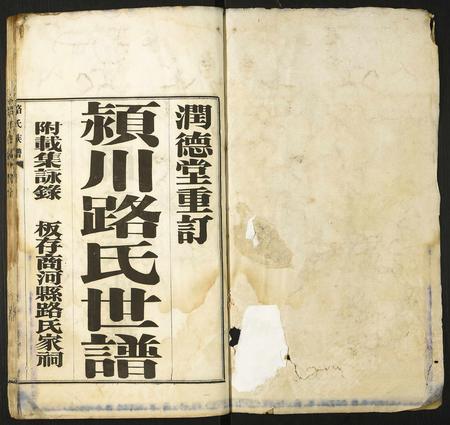 潤德堂重訂
潁川路氏世譜
附載集詠錄 板存商河縣路氏家祠
路氏族譜